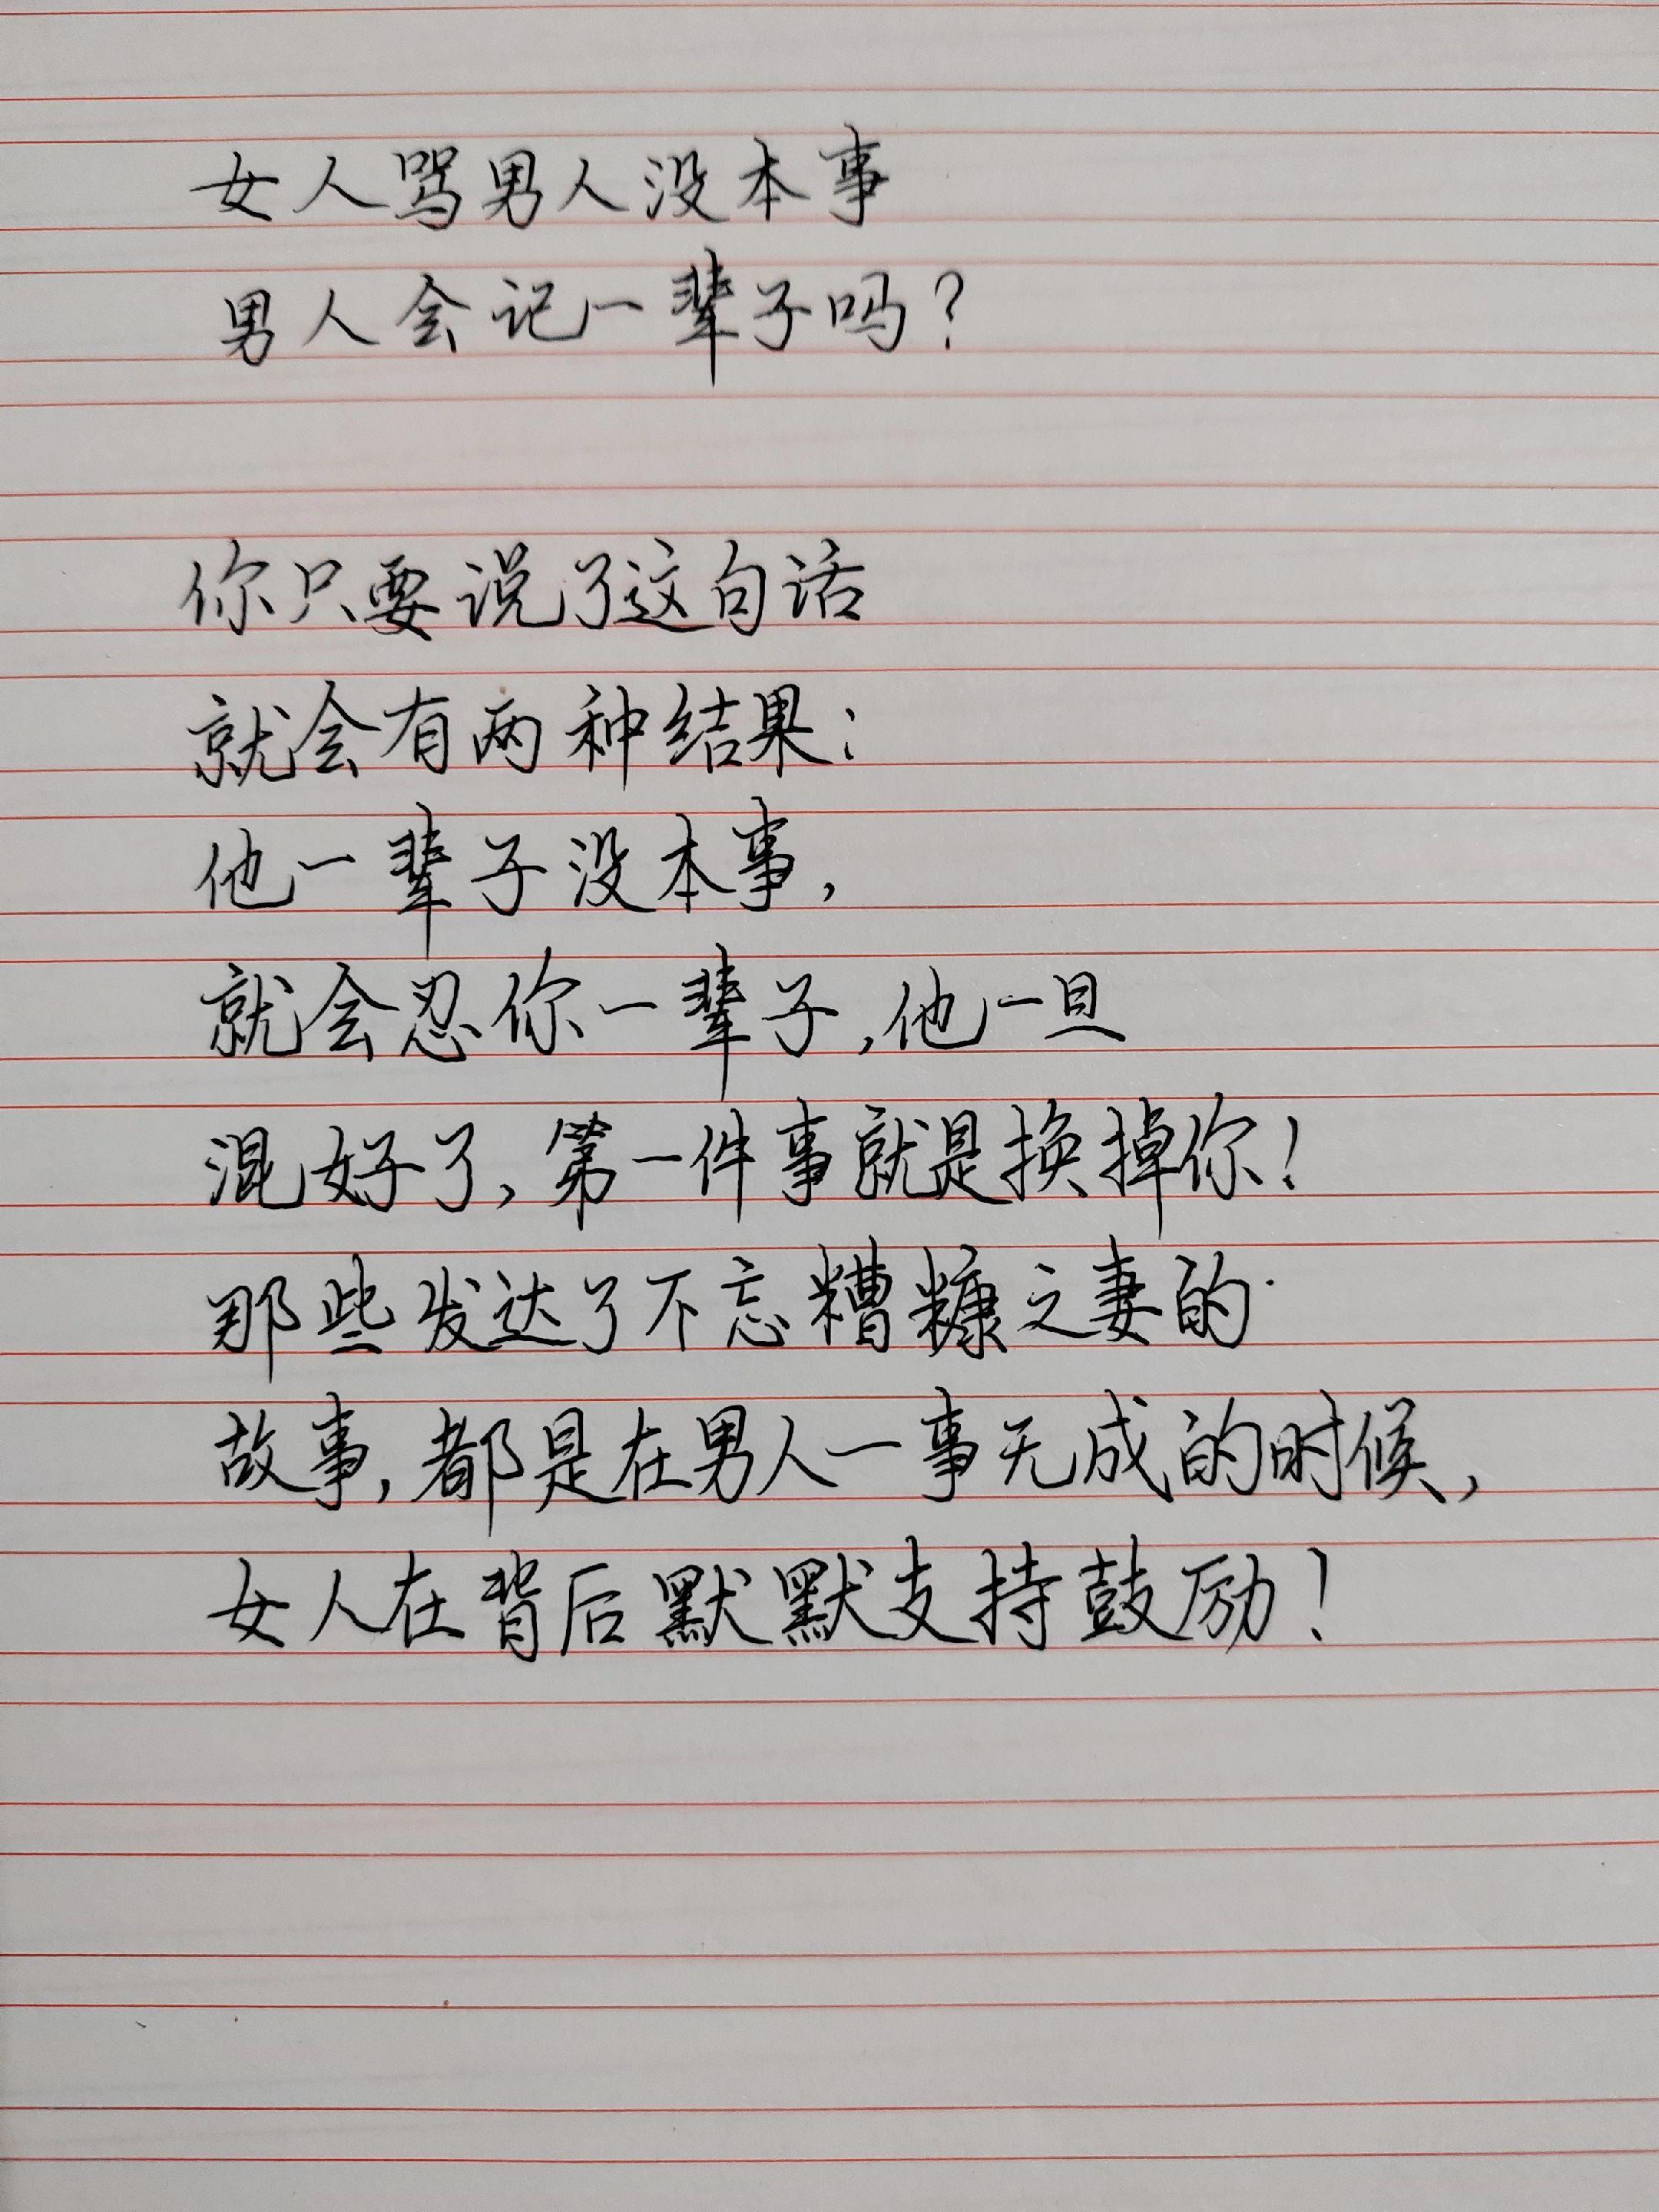 女人骂男人没本事
男人会记一辈子吗？
你只要说了这句话
就会有两种结果：
他一辈子没本事，
就会忍你一辈子，他一旦
混好了，第一件事就是换掉你！
那些发达了不忘糟糠之妻的
故事，都是在男人一事无成的时候，
女人在背后默默支持鼓励！